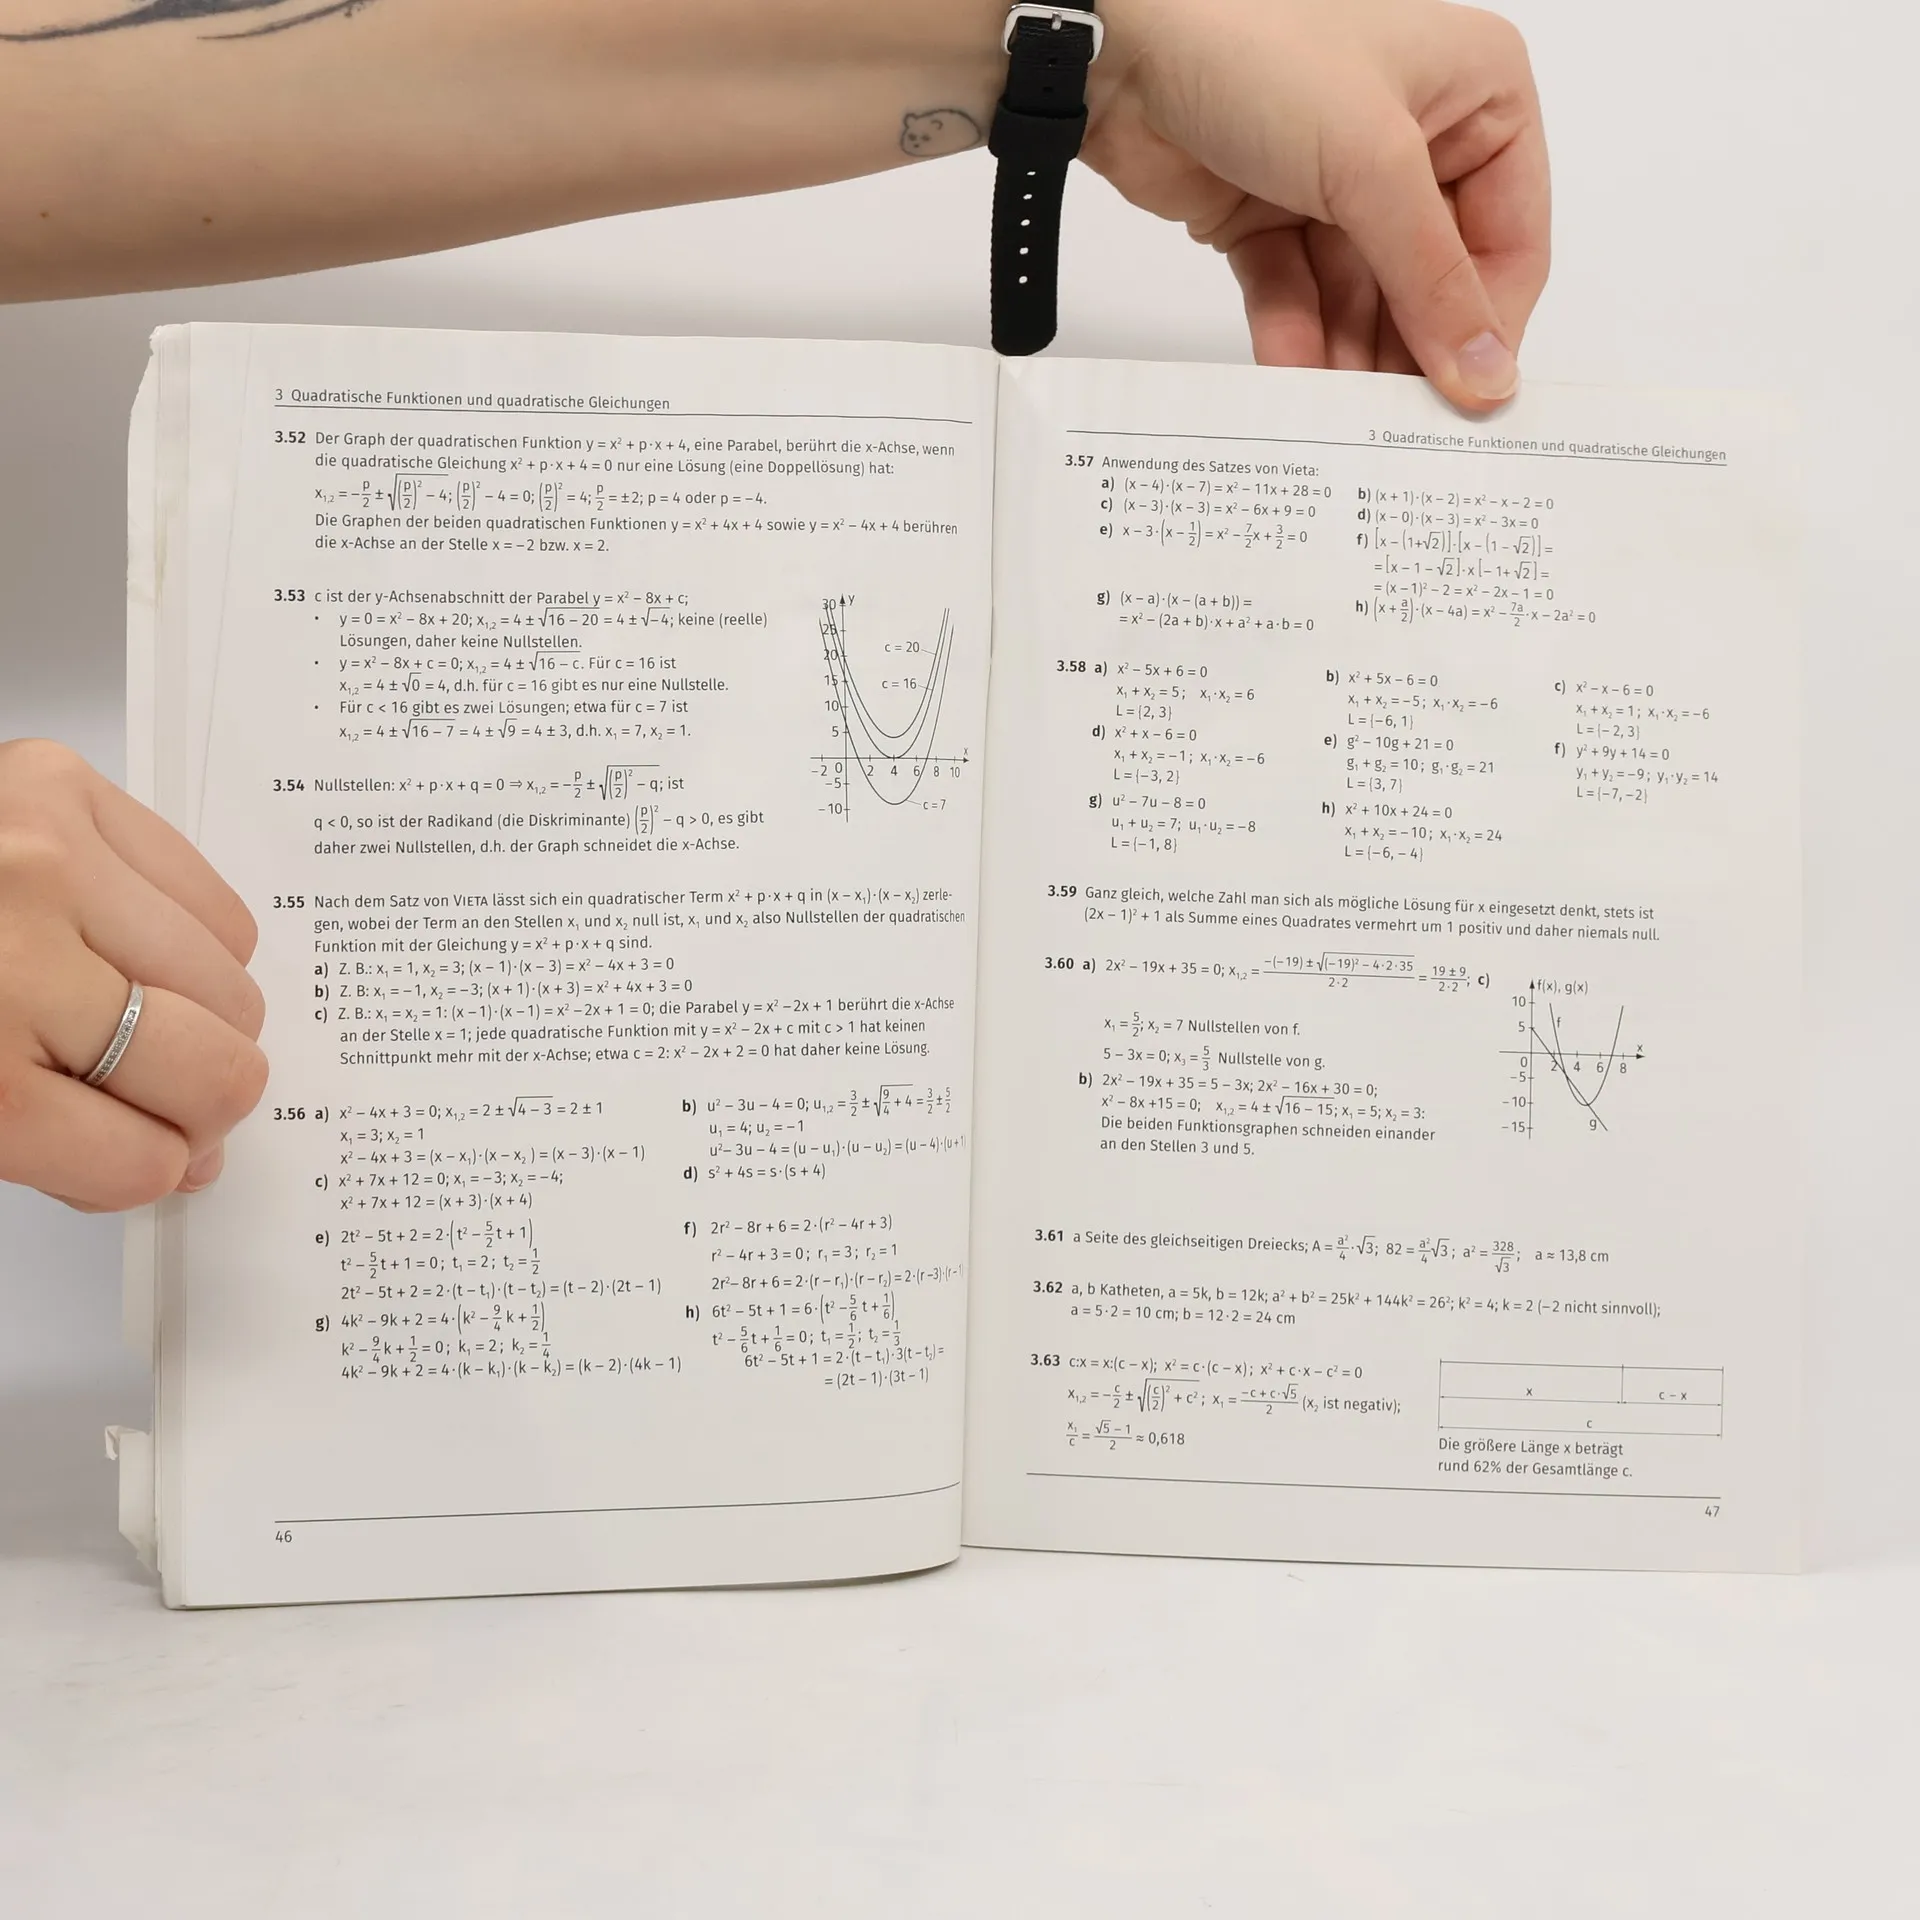 3 Quadratische Funktionen und quadratische Gleichungen
3.52 Der Graph der quadratischen Funktion y = x² + p·x + 4, eine Parabel, berührt die x-Achse, wenn
die quadratische Gleichung x² + p·x + 4 = 0 nur eine Lösung (eine Doppellösung) hat:
x₁,₂ = –p/2 ± √((p/2)² – 4); (p/2)² – 4 = 0; (p/2)² = 4; p/2 = ±2; p = 4 oder p = –4.
Die Graphen der beiden quadratischen Funktionen y = x² + 4x + 4 sowie y = x² – 4x + 4 berühren
die x-Achse an der Stelle x = –2 bzw. x = 2.
3.53 c ist der y-Achsenabschnitt der Parabel y = x² – 8x + c;
• y = 0 = x² – 8x + 20; x₁,₂ = 4 ± √(16 – 20) = 4 ± √–4; keine (reelle)
Lösungen, daher keine Nullstellen.
• y = x² – 8x + c = 0; x₁,₂ = 4 ± √(16 – c). Für c = 16 ist
x₁,₂ = 4 ± √0 = 4, d.h. für c = 16 gibt es nur eine Nullstelle.
• Für c < 16 gibt es zwei Lösungen; etwa für c = 7 ist
x₁,₂ = 4 ± √(16 – 7) = 4 ± √9 = 4 ± 3, d.h. x₁ = 7, x₂ = 1.
30 y
25
20
15
10
5
–2 0 2 4 6 8 10 x
–5
–10
c = 20
c = 16
c = 7
3.54 Nullstellen: x² + p·x + q = 0 ⇒ x₁,₂ = –p/2 ± √((p/2)² – q); ist
q < 0, so ist der Radikand (die Diskriminante) (p/2)² – q > 0, es gibt
daher zwei Nullstellen, d.h. der Graph schneidet die x-Achse.
3.55 Nach dem Satz von VIETA lässt sich ein quadratischer Term x² + p·x + q in (x – x₁)·(x – x₂) zerle-
gen, wobei der Term an den Stellen x₁ und x₂ null ist, x₁ und x₂ also Nullstellen der quadratischen
Funktion mit der Gleichung y = x² + p·x + q sind.
a) Z. B.: x₁ = 1, x₂ = 3; (x – 1)·(x – 3) = x² – 4x + 3 = 0
b) Z. B: x₁ = –1, x₂ = –3; (x + 1)·(x + 3) = x² + 4x + 3 = 0
c) Z. B.: x₁ = x₂ = 1: (x – 1)·(x – 1) = x² – 2x + 1 = 0; die Parabel y = x² – 2x + 1 berührt die x-Achse
an der Stelle x = 1; jede quadratische Funktion mit y = x² – 2x + c mit c > 1 hat keinen
Schnittpunkt mehr mit der x-Achse; etwa c = 2: x² – 2x + 2 = 0 hat daher keine Lösung.
3.56 a) x² – 4x + 3 = 0; x₁,₂ = 2 ± √(4 – 3) = 2 ± 1
x₁ = 3; x₂ = 1
x² – 4x + 3 = (x – x₁)·(x – x₂) = (x – 3)·(x – 1)
b) u² – 3u – 4 = 0; u₁,₂ = 3/2 ± √(9/4 + 4) = 3/2 ± 5/2
u₁ = 4; u₂ = –1
u² – 3u – 4 = (u – u₁)·(u – u₂) = (u – 4)·(u + 1
c) x² + 7x + 12 = 0; x₁ = –3; x₂ = –4;
x² + 7x + 12 = (x + 3)·(x + 4)
d) s² + 4s = s·(s + 4)
e) 2t² – 5t + 2 = 2·(t² – 5/2 t + 1)
t² – 5/2 t + 1 = 0; t₁ = 2; t₂ = 1/2
2t² – 5t + 2 = 2·(t – t₁)·(t – t₂) = (t – 2)·(2t – 1)
f) 2r² – 8r + 6 = 2·(r² – 4r + 3)
r² – 4r + 3 = 0; r₁ = 3; r₂ = 1
2r² – 8r + 6 = 2·(r – r₁)·(r – r₂) = 2·(r – 3)·(r – 1
g) 4k² – 9k + 2 = 4·(k² – 9/4 k + 1/2)
k² – 9/4 k + 1/2 = 0; k₁ = 2; k₂ = 1/4
4k² – 9k + 2 = 4·(k – k₁)·(k – k₂) = (k – 2)·(4k – 1)
h) 6t² – 5t + 1 = 6·(t² – 5/6 t + 1/6)
t² – 5/6 t + 1/6 = 0; t₁ = 1/2; t₂ = 1/3
6t² – 5t + 1 = 2·(t – t₁)·3(t – t₂) =
= (2t – 1)·(3t – 1)
46
3 Quadratische Funktionen und quadratische Gleichungen
3.57 Anwendung des Satzes von Vieta:
a) (x – 4)·(x – 7) = x² – 11x + 28 = 0
b) (x + 1)·(x – 2) = x² – x – 2 = 0
c) (x – 3)·(x – 3) = x² – 6x + 9 = 0
d) (x – 0)·(x – 3) = x² – 3x = 0
e) x – 3·(x – 1/2) = x² – 7/2 x + 3/2 = 0
f) [x – (1+√2)]·[x – (1 – √2)] =
= [x – 1 – √2]·x[– 1+ √2] =
= (x – 1)² – 2 = x² – 2x – 1 = 0
g) (x – a)·(x – (a + b)) =
= x² – (2a + b)·x + a² + a·b = 0
h) (x + a/2)·(x – 4a) = x² – 7a/2·x – 2a² = 0
3.58 a) x² – 5x + 6 = 0
x₁ + x₂ = 5; x₁·x₂ = 6
L = {2, 3}
b) x² + 5x – 6 = 0
x₁ + x₂ = –5; x₁·x₂ = –6
L = {–6, 1}
c) x² – x – 6 = 0
x₁ + x₂ = 1; x₁·x₂ = –6
L = {–2, 3}
d) x² + x – 6 = 0
x₁ + x₂ = –1; x₁·x₂ = –6
L = {–3, 2}
e) g² – 10g + 21 = 0
g₁ + g₂ = 10; g₁·g₂ = 21
L = {3, 7}
f) y² + 9y + 14 = 0
y₁ + y₂ = –9; y₁·y₂ = 14
L = {–7, –2}
g) u² – 7u – 8 = 0
u₁ + u₂ = 7; u₁·u₂ = –8
L = {–1, 8}
h) x² + 10x + 24 = 0
x₁ + x₂ = –10; x₁·x₂ = 24
L = {–6, –4}
3.59 Ganz gleich, welche Zahl man sich als mögliche Lösung für x eingesetzt denkt, stets ist
(2x – 1)² + 1 als Summe eines Quadrates vermehrt um 1 positiv und daher niemals null.
3.60 a) 2x² – 19x + 35 = 0; x₁,₂ = (–(–19) ± √((–19)² – 4·2·35))/(2·2) = (19 ± 9)/(2·2);
x₁ = 5/2; x₂ = 7 Nullstellen von f.
5 – 3x = 0; x₃ = 5/3 Nullstelle von g.
b) 2x² – 19x + 35 = 5 – 3x; 2x² – 16x + 30 = 0;
x² – 8x +15 = 0; x₁,₂ = 4 ± √(16 – 15); x₁ = 5; x₂ = 3:
Die beiden Funktionsgraphen schneiden einander
an den Stellen 3 und 5.
c)
f(x), g(x)
10
5
f
x
0 2 4 6 8
–5
–10
–15
g
3.61 a Seite des gleichseitigen Dreiecks; A = a²/4·√3; 82 = a²/4 √3; a² = 328/√3; a ≈ 13,8 cm
3.62 a, b Katheten, a = 5k, b = 12k; a² + b² = 25k² + 144k² = 26²; k² = 4; k = 2 (–2 nicht sinnvoll);
a = 5·2 = 10 cm; b = 12·2 = 24 cm
3.63 c:x = x:(c – x); x² = c·(c – x); x² + c·x – c² = 0
x₁,₂ = –c/2 ± √((c/2)² + c²); x₁ = (–c + c·√5)/2 (x₂ ist negativ);
x₁/c = (√5 – 1)/2 ≈ 0,618
x
c – x
c
Die größere Länge x beträgt
rund 62% der Gesamtlänge c.
47